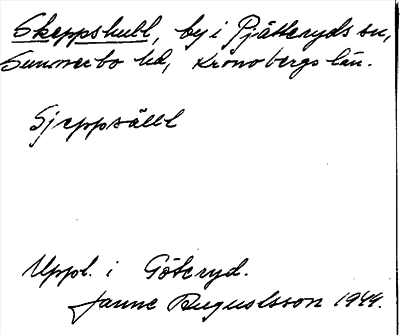 Skeppshult, by i Pjätteryds sn,
Sunnerbo hd, Kronobergs län.
Sjeppsällt
Uppl. i Göteryd.
Janne Augustsson 1944.